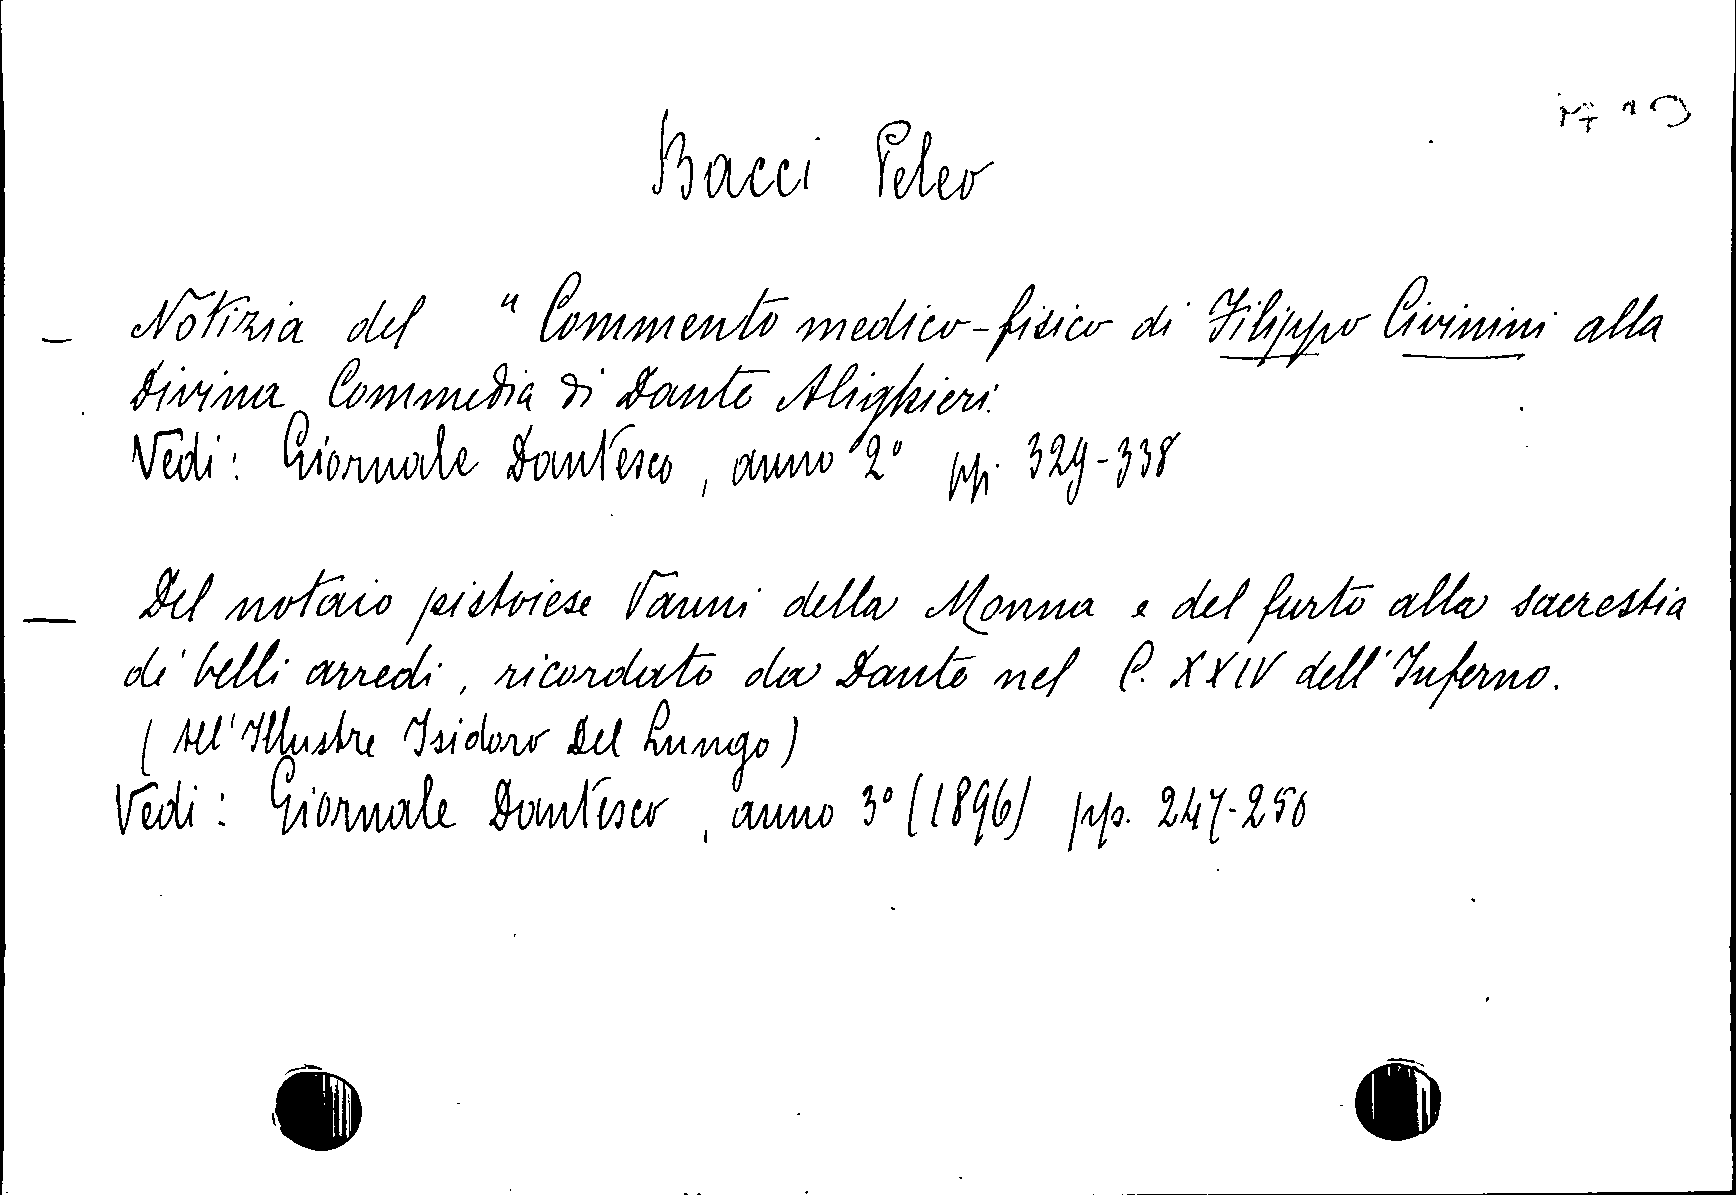 Bacci Peleo
— Notizia del "Commento medico-fisico di Filippo Civinini alla
Divina Commedia di Dante Alighieri.
Vedi: Giornale Dantesco, anno 2° pp. 329-338
— Del notaio pistoiese Vanni della Monna e del furto alla sacrestia
de' belli arredi, ricordato da Dante nel C. XXIV dell'Inferno.
(All'Illustre Isidoro Del Lungo)
Vedi: Giornale Dantesco, anno 3° (1896) pp. 247-250